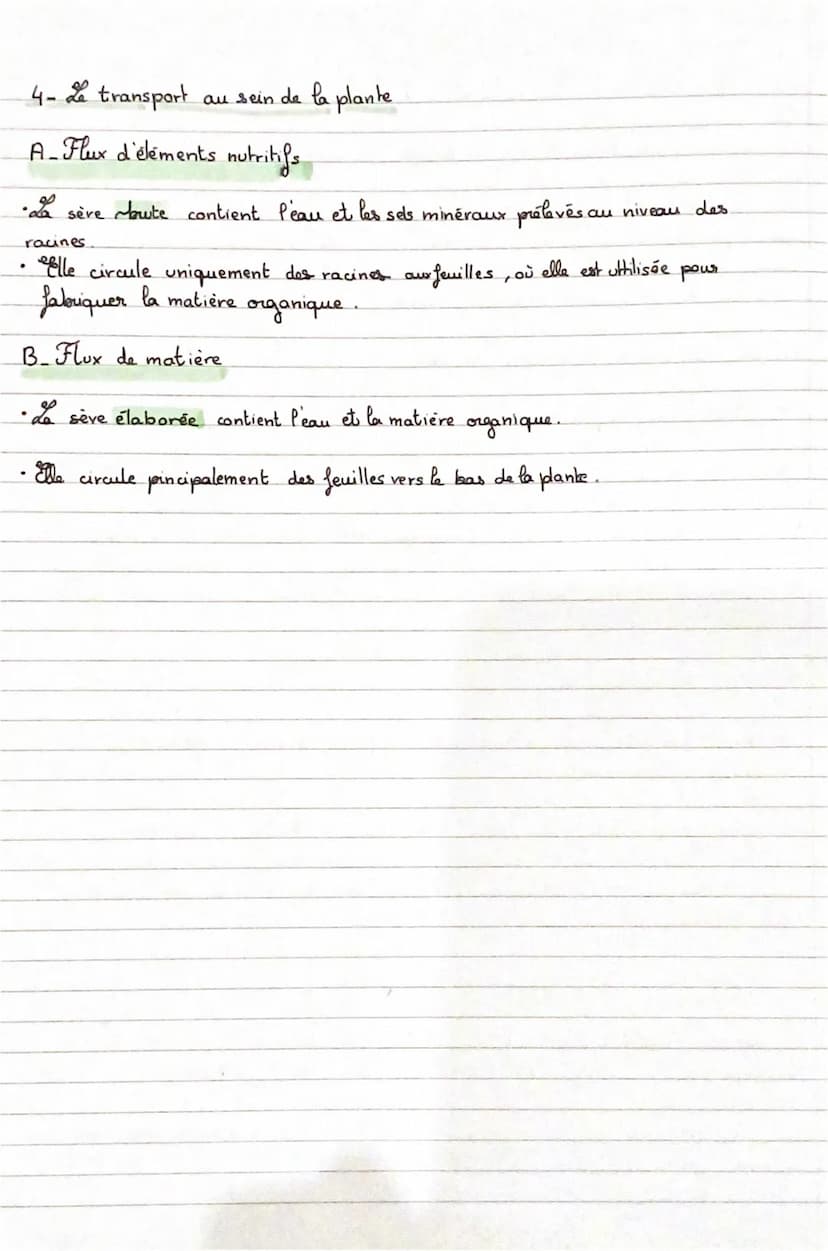 4- Le transport au sein de la plante
A- Flux d'éléments nutritifs
• La sève brute contient l'eau et les sels minéraux prélevés au niveau des
racines.
• Elle circule uniquement des racines aux feuilles, où elle est utilisée pour
fabriquer la matière organique.
B- Flux de matière
• La sève élaborée contient l'eau et la matière organique.
• Elle circule pincipalement des feuilles vers le bas de la plante.